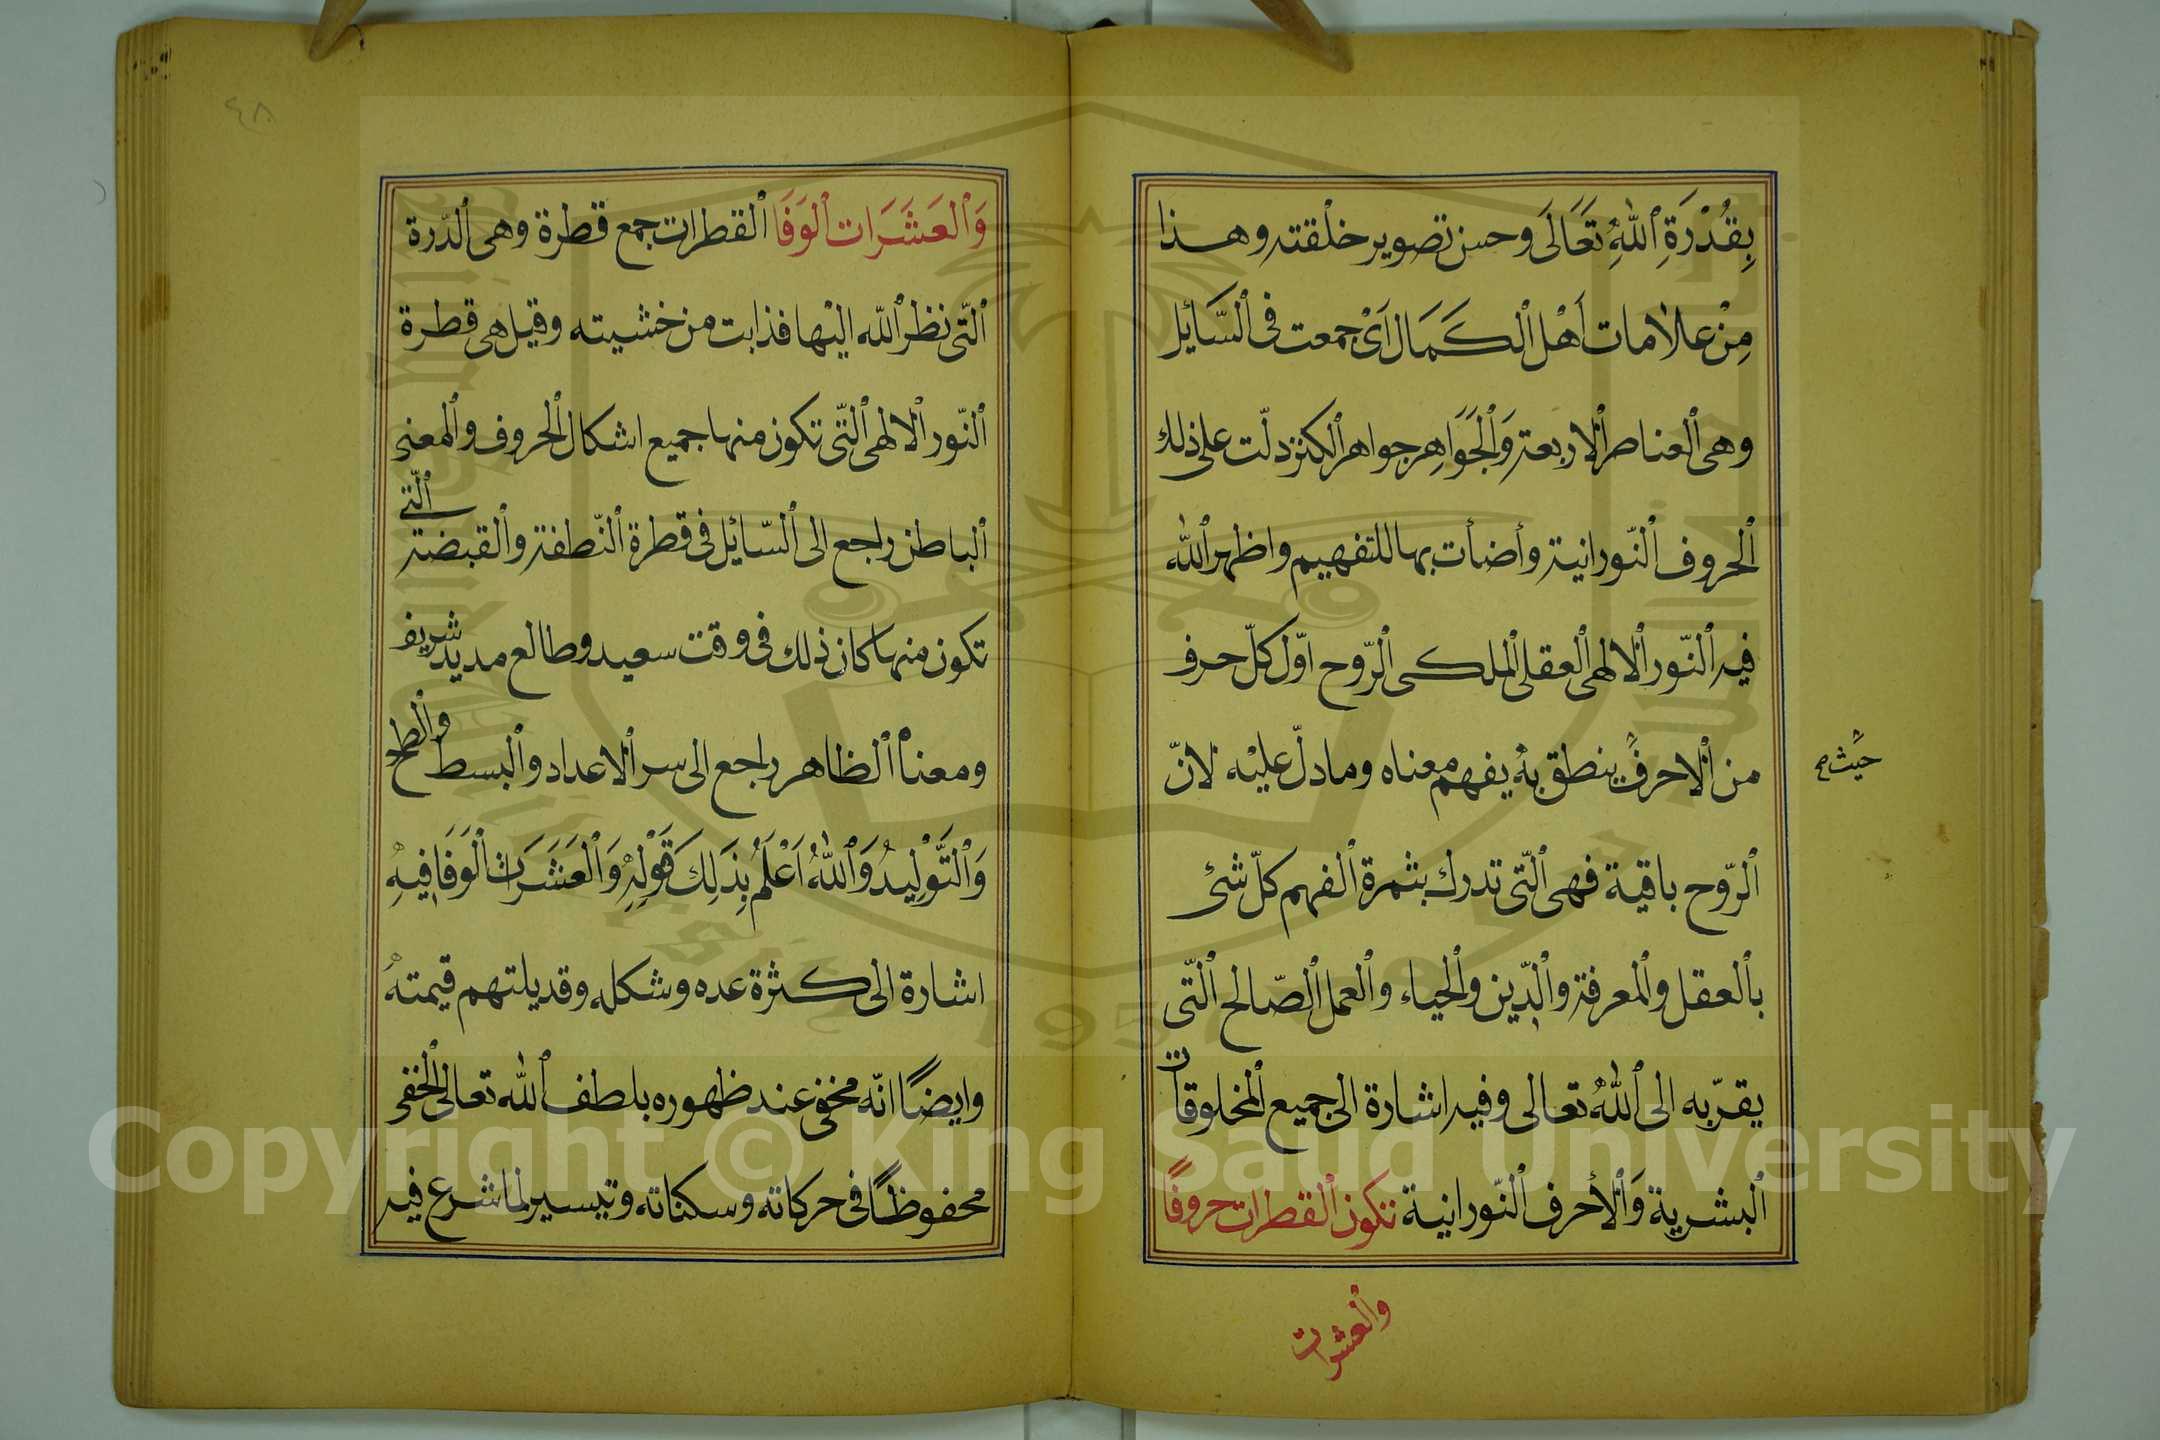 بِقُدْرَةِ ٱللَّهِ تَعَالَى وحسن تصوير خلقته وهذا
مِنْ علامات أَهْل ٱلكَمَال اَىْ جمعت فى ٱلسَّائِل
وهى ٱلعناصر ٱلاربعة وَٱلجَوَاهِر جواهر ٱلكنز دلّت على ذلك
ٱلحروف ٱلنّورانية وأضأت بها للتفهيم واظهر ٱللّٰه
فيه ٱلنّور ٱلالهى ٱلعقلى ٱلملكى ٱلرّوح اوّل كلّ حرف
من ٱلاحرف ينطق به يفهم معناه وما دلّ عليْه لانّ
حيْث صح
ٱلرّوح باقية فهى ٱلتّى تدرك بثمرة ٱلفهم كلّ شئ
بٱلعقل وٱلمعرفة وٱلدّين وٱلحياء وٱلعمل ٱلصّالح ٱلتّى
يقرّبه الى ٱللّٰه تعالى وفيه اشارة الى جميع ٱلمخلوقات
ٱلبشرية وَٱلأحرف ٱلنّورانية تكون ٱلقطرات حروفًا
وٱلعشرات
٤٨
وَٱلعَشَرَات ٱلوَفَا ٱلقطرات جمع قطرة وهى ٱلدّرة
ٱلتّى نظر ٱللّه اليْها فذابت من خشيته وقيل هى قطرة
ٱلنّور ٱلالهى ٱلتّى تكون منها جميع اشكال ٱلحروف وٱلمعنى
ٱلباطن راجع الى ٱلسّائِل فى قطرة ٱلنّطفة وٱلقبضة ٱلّتى
تكون منها كان ذلك فى وقت سعيد وطالع مديد شريف
ومعناه ٱلظاهر راجع الى سر ٱلاعداد وٱلبسط وٱلطح
وَٱلتَّوْلِيدُ وَٱللّٰهُ اَعْلَمُ بِذَلِكَ قَوْلِهِ وَٱلعَشَرَات ٱلوَفَا فِيهِ
اشارة الى كثرة عده وشكله وقد يلتهم قيمته
وايضًا انّه مخفى عند ظهوره بلطف ٱللّٰه تعالى ٱلخفى
محفوظًا فى حركاته وسكناته وتيسير لما شرع فيه
Copyright © King Saud University
1957